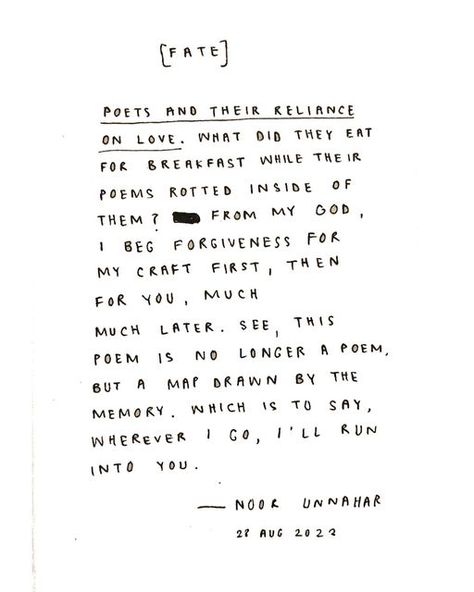 [FATE]
POETS AND THEIR RELIANCE
ON LOVE. WHAT DID THEY EAT
FOR BREAKFAST WHILE THEIR
POEMS ROTTED INSIDE OF
THEM? FROM MY GOD,
I BEG FORGIVENESS FOR
MY CRAFT FIRST, THEN
FOR YOU, MUCH
MUCH LATER. SEE, THIS
POEM IS NO LONGER A POEM,
BUT A MAP DRAWN BY THE
MEMORY. WHICH IS TO SAY,
WHEREVER I GO, I'LL RUN
INTO YOU.
— NOOR UNNAHAR
28 AUG 2022